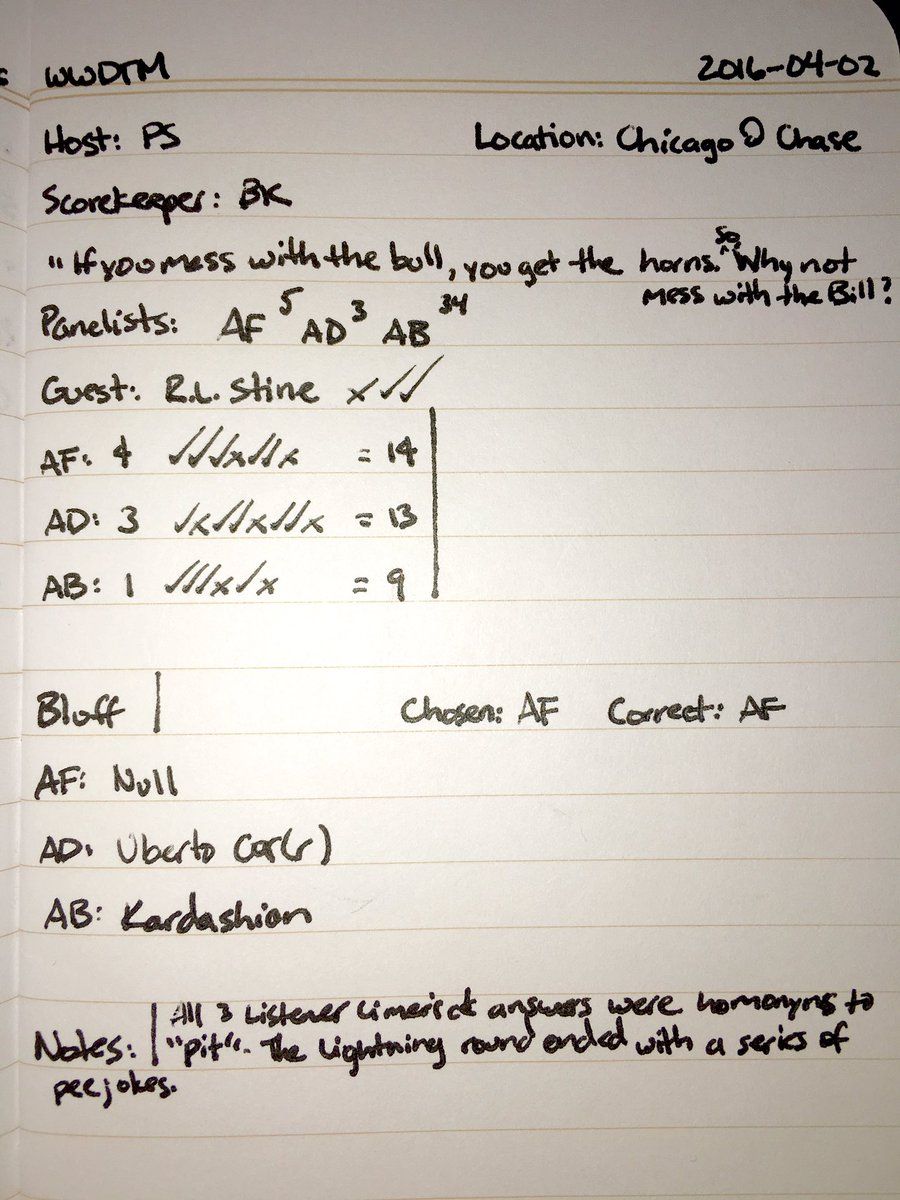 WWDTM 2016-04-02
Host: PS Location: Chicago @ Chase
Scorekeeper: BK
"If you mess with the bull, you get the horns. So, Why not
mess with the Bill?
Panelists: AF 5 AD 3 AB 34
Guest: R.L. Stine ✗✓✓
AF: 4 ✓✓✓✗✓✓✗ = 14
AD: 3 ✓✗✓✓✗✓✓✗ = 13
AB: 1 ✓✓✓✗✓✗ = 9
Bluff Chosen: AF Correct: AF
AF: Null
AD: Uberto Car(r)
AB: Kardashian
All 3 Listener Limerick answers were homonyms to
Notes: "pit". The Lightning round ended with a series of
pee jokes.